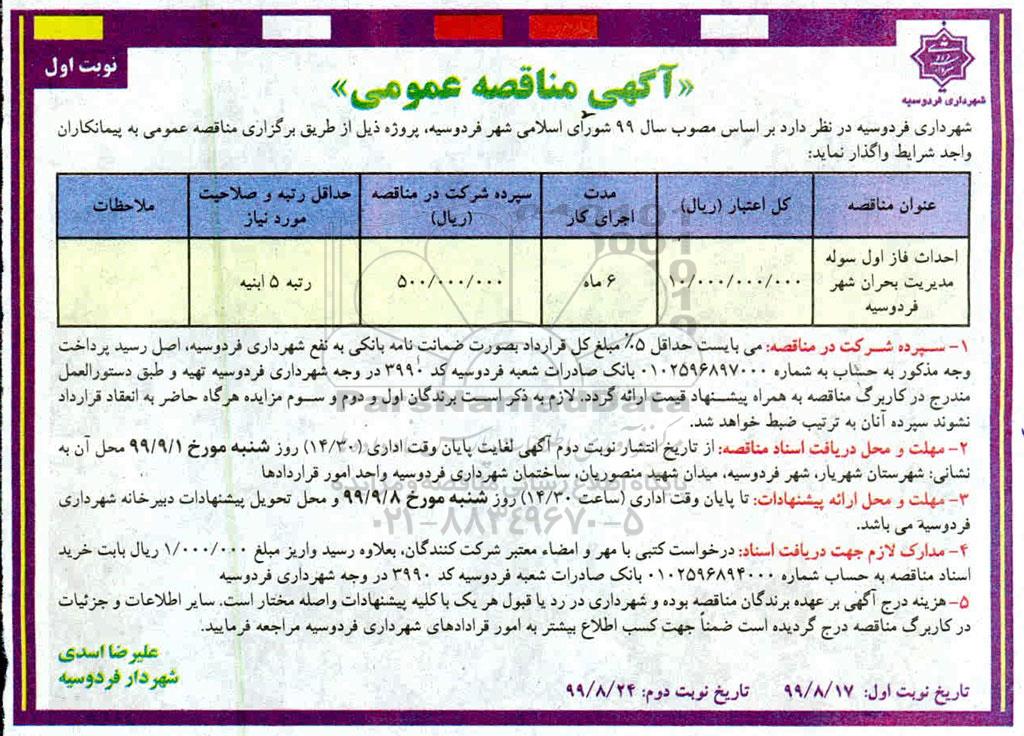 نوبت اول
شهرداری فردوسیه
«آگهی مناقصه عمومی»
شهرداری فردوسیه در نظر دارد بر اساس مصوب سال ۹۹ شورای اسلامی شهر فردوسیه، پروژه ذیل از طریق برگزاری مناقصه عمومی به پیمانکاران
واجد شرایط واگذار نماید:
عنوان مناقصه
کل اعتبار (ریال)
مدت
اجرای کار
سپرده شرکت در مناقصه
(ریال)
حداقل رتبه و صلاحیت
مورد نیاز
ملاحظات
احداث فاز اول سوله
مدیریت بحران شهر
فردوسیه
۱۰/۰۰۰/۰۰۰/۰۰۰
۶ ماه
۵۰۰/۰۰۰/۰۰۰
رتبه ۵ ابنیه
۱- سپرده شرکت در مناقصه: می بایست حداقل ۵٪ مبلغ کل قرارداد بصورت ضمانت نامه بانکی به نفع شهرداری فردوسیه، اصل رسید پرداخت
وجه مذکور به حساب به شماره ۰۱۰۲۵۹۶۸۹۷۰۰۰ بانک صادرات شعبه فردوسیه کد ۳۹۹۰ در وجه شهرداری فردوسیه تهیه و طبق دستورالعمل
مندرج در کاربرگ مناقصه به همراه پیشنهاد قیمت ارائه گردد. لازم به ذکر است برندگان اول و دوم و سوم مزایده هرگاه حاضر به انعقاد قرارداد
نشوند سپرده آنان به ترتیب ضبط خواهد شد.
ParsNamadData
۲- مهلت و محل دریافت اسناد مناقصه: از تاریخ انتشار نوبت دوم آگهی لغایت پایان وقت اداری (۱۴/۳۰) روز شنبه مورخ ۹۹/۹/۱ محل آن به
نشانی: شهرستان شهریار، شهر فردوسیه، میدان شهید منصوریان، ساختمان شهرداری فردوسیه واحد امور قراردادها
۳- مهلت و محل ارائه پیشنهادات: تا پایان وقت اداری (ساعت ۱۴/۳۰) روز شنبه مورخ ۹۹/۹/۸ و محل تحویل پیشنهادات دبیرخانه شهرداری
فردوسیه می باشد.
۰۲۱-۸۸۳۴۹۶۷۰-۵
۴- مدارک لازم جهت دریافت اسناد: درخواست کتبی با مهر و امضاء معتبر شرکت کنندگان، بعلاوه رسید واریز مبلغ ۱/۰۰۰/۰۰۰ ریال بابت خرید
اسناد مناقصه به حساب شماره ۰۱۰۲۵۹۶۸۹۴۰۰۰ بانک صادرات شعبه فردوسیه کد ۳۹۹۰ در وجه شهرداری فردوسیه
۵- هزینه درج آگهی بر عهده برندگان مناقصه بوده و شهرداری در رد یا قبول هر یک با کلیه پیشنهادات واصله مختار است. سایر اطلاعات و جزئیات
در کاربرگ مناقصه درج گردیده است ضمناً جهت کسب اطلاع بیشتر به امور قرادادهای شهرداری فردوسیه مراجعه فرمایید.
علیرضا اسدی
شهردار فردوسیه
تاریخ نوبت اول: ۹۹/۸/۱۷ تاریخ نوبت دوم: ۹۹/۸/۲۴